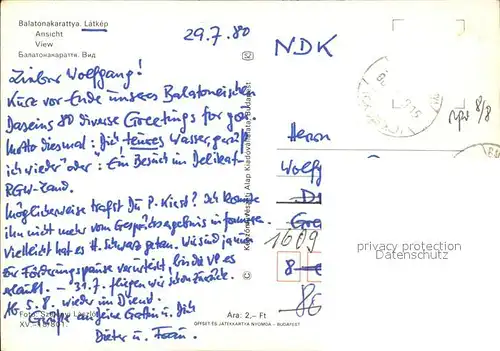 Balatonakarattya. Látkép
Ansicht
View
Балатонакараття. Вид
29.7.80
NDK
Lieber Wolfgang!
Kurz vor Ende unseres Balatoneischen
Daseins 80 diverse Greetings for you.
Motto diesmal: "Dich teures Wasser, grüß
ich wieder" oder: "Ein Besuch im Delikat-
RGW-Land.
Möglicherweise trafst Du P. Kiest? Ich konnte
ihn nicht mehr vom Gesprächsergebnis informie.
Vielleicht hat es H. Schwarz getan. Wir sind ja nun
zur Förderungspause verurteilt, bis die VP es
erlaubt. – 31.7. fliegen wir schon zurück.
Ab 5.8. wieder im Dienst.
Grüße an Deine Gattin u. Dich
Dieter u. Frau.
Herrn
Wolfg
D
Gre
1609
8-
8/8
Képzőművészeti Alap Kiadóvállalata, Budapest
privacy protection
Datenschutz
Foto: László
XV-
Ára: 2,– Ft
OFFSET ÉS JÁTÉKKÁRTYA NYOMDA – BUDAPEST